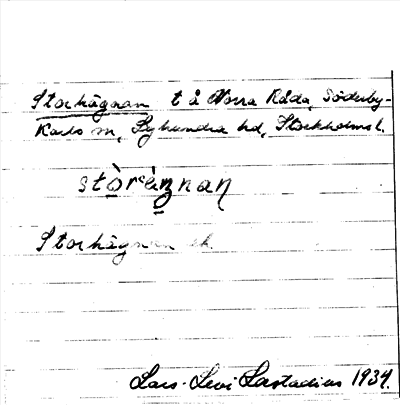 Storhägnan t å Norra Råda, Söderby-
Karls sn, Lyhundra hd, Stockholms l.
stòrˈèŋnan
Storhägnan ek.
Lars-Levi Læstadius 1934.